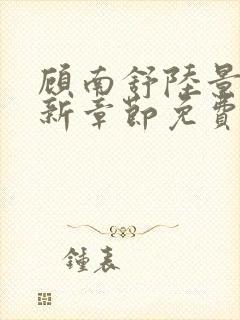 顾南舒陸景
新章節免費
鍾表